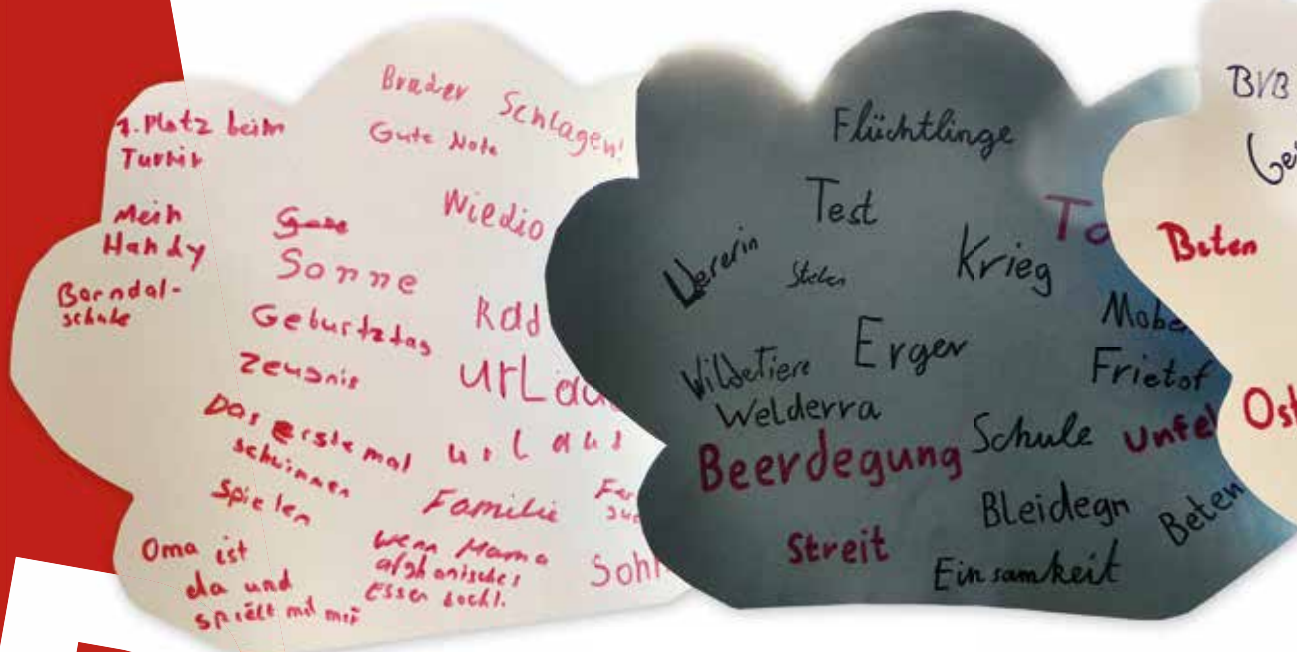 1. Platz beim
Turnir
Mein
Handy
Barndal-
schule
Bruder Schlagen!
Gute Note
Wiedio
Sonne
Geburtztag
Rad
Zeugnis
urLau
Das erste mal
schwimmen
urlaub
Spielen
Familie
Oma ist
da und
spielt mit mir
wenn Mama
afghanisches
Essen kocht.
Flüchtlinge
Test
Krieg
Wilde Tiere
Erger
Mobe
Frietof
Welderra
Beerdegung
Schule
Unfel
Bleidegn
Beten
Streit
Einsamkeit
BVB
Beten
Ost